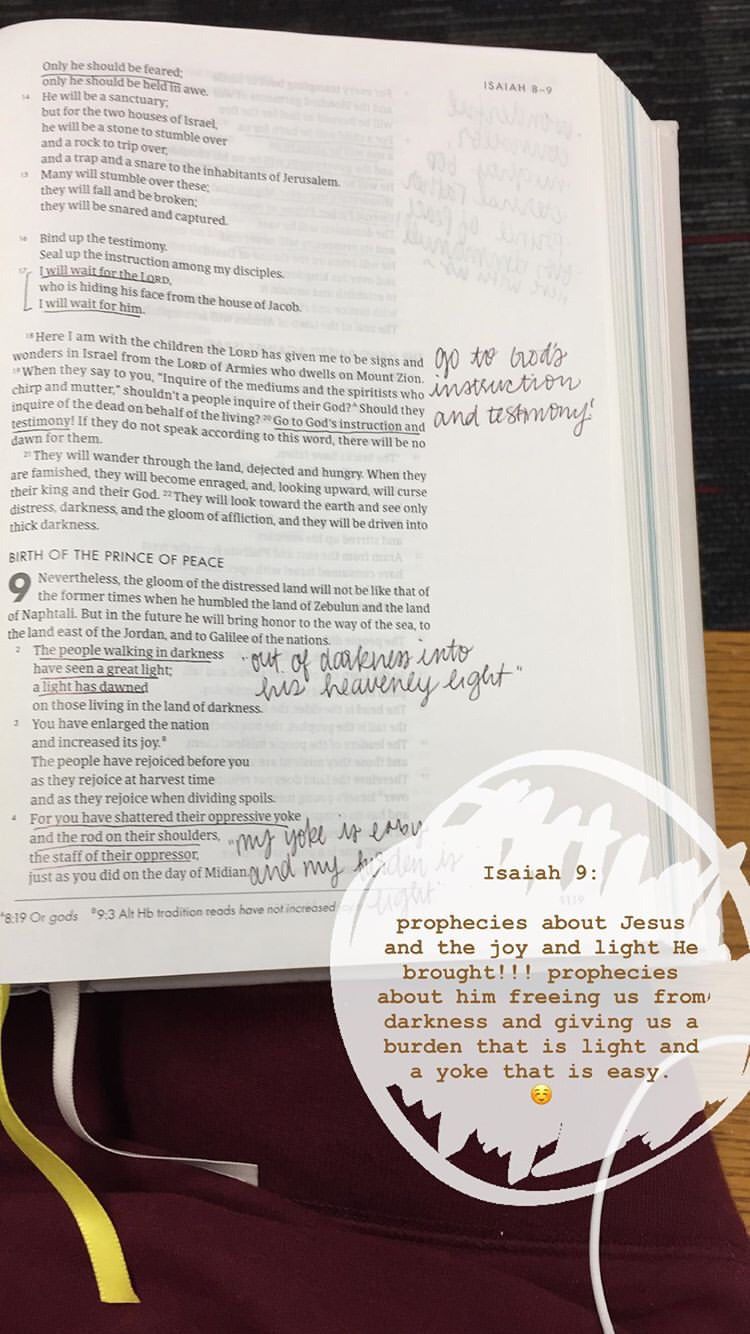 ISAIAH 8–9
Only he should be feared;
only he should be held in awe.
14 He will be a sanctuary;
but for the two houses of Israel,
he will be a stone to stumble over
and a rock to trip over,
and a trap and a snare to the inhabitants of Jerusalem.
15 Many will stumble over these;
they will fall and be broken;
they will be snared and captured.
16 Bind up the testimony.
Seal up the instruction among my disciples.
17 I will wait for the LORD,
who is hiding his face from the house of Jacob.
I will wait for him.
18 Here I am with the children the LORD has given me to be signs and
wonders in Israel from the LORD of Armies who dwells on Mount Zion.
19 When they say to you, "Inquire of the mediums and the spiritists who
chirp and mutter," shouldn't a people inquire of their God?A Should they
inquire of the dead on behalf of the living? 20 Go to God's instruction and
testimony! If they do not speak according to this word, there will be no
dawn for them.
go to God's
instruction
and testimony!
21 They will wander through the land, dejected and hungry. When they
are famished, they will become enraged, and, looking upward, will curse
their king and their God. 22 They will look toward the earth and see only
distress, darkness, and the gloom of affliction, and they will be driven into
thick darkness.
BIRTH OF THE PRINCE OF PEACE
9 Nevertheless, the gloom of the distressed land will not be like that of
the former times when he humbled the land of Zebulun and the land
of Naphtali. But in the future he will bring honor to the way of the sea, to
the land east of the Jordan, and to Galilee of the nations.
2 The people walking in darkness
have seen a great light;
a light has dawned
on those living in the land of darkness.
"out of darkness into
his heavenly light"
3 You have enlarged the nation
and increased its joy.B
The people have rejoiced before you
as they rejoice at harvest time
and as they rejoice when dividing spoils.
4 For you have shattered their oppressive yoke
and the rod on their shoulders,
the staff of their oppressor,
just as you did on the day of Midian.
"my yoke is easy
and my burden is
light"
A8:19 Or gods B9:3 Alt Hb tradition reads have not increased
1119
Isaiah 9:
prophecies about Jesus
and the joy and light He
brought!!! prophecies
about him freeing us from
darkness and giving us a
burden that is light and
a yoke that is easy.
☺️